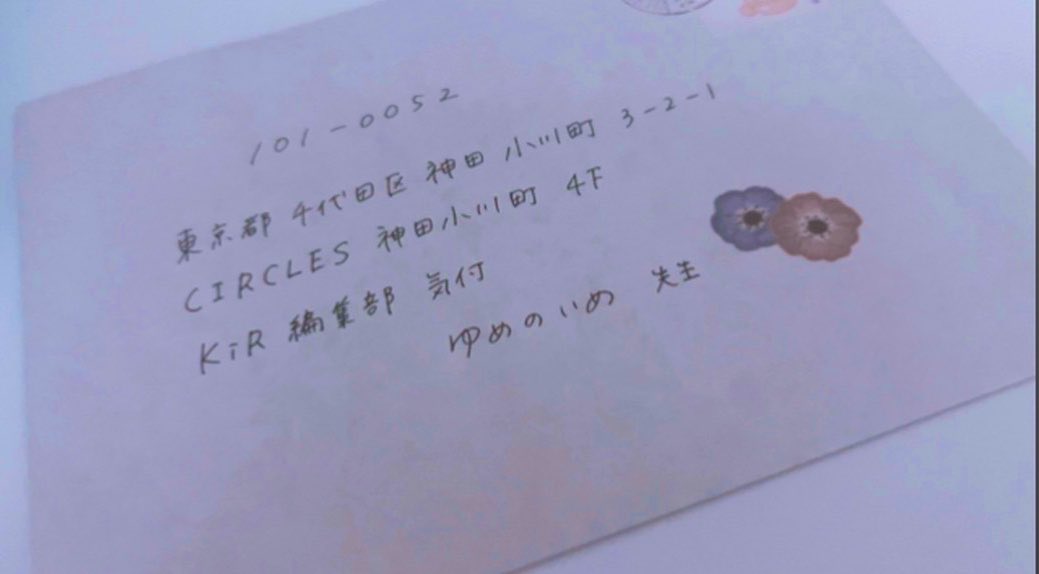 101-0052
東京都 千代田区 神田 小川町 3-2-1
CIRCLES 神田小川町 4F
KiR 編集部 気付
ゆめのいめ 先生